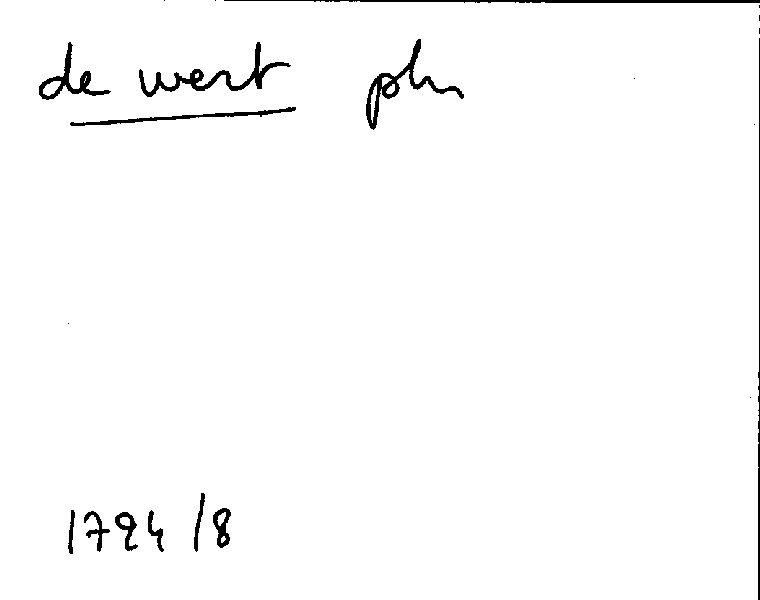 de wert pln
1724 /8